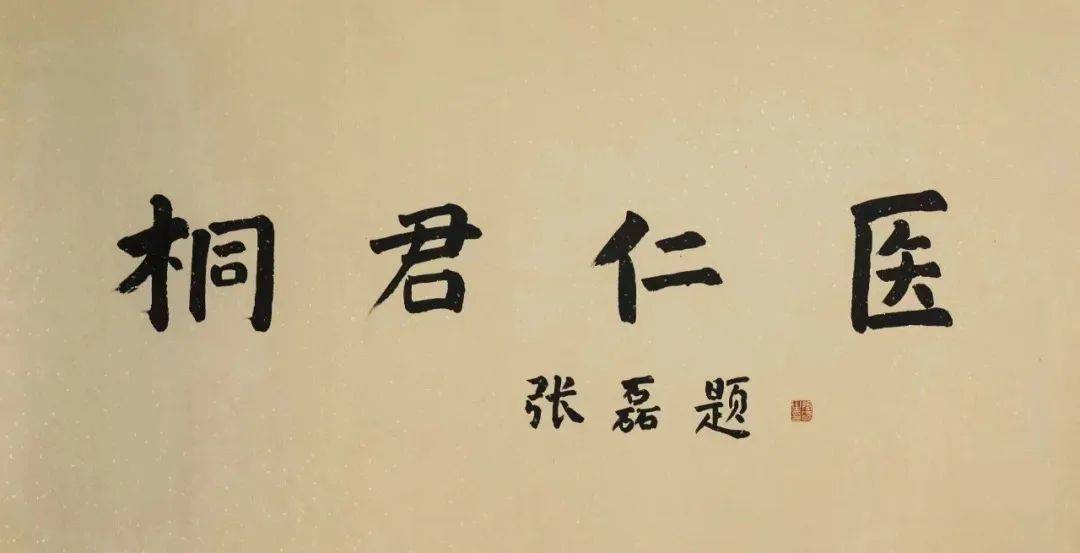 桐君仁医
张磊题